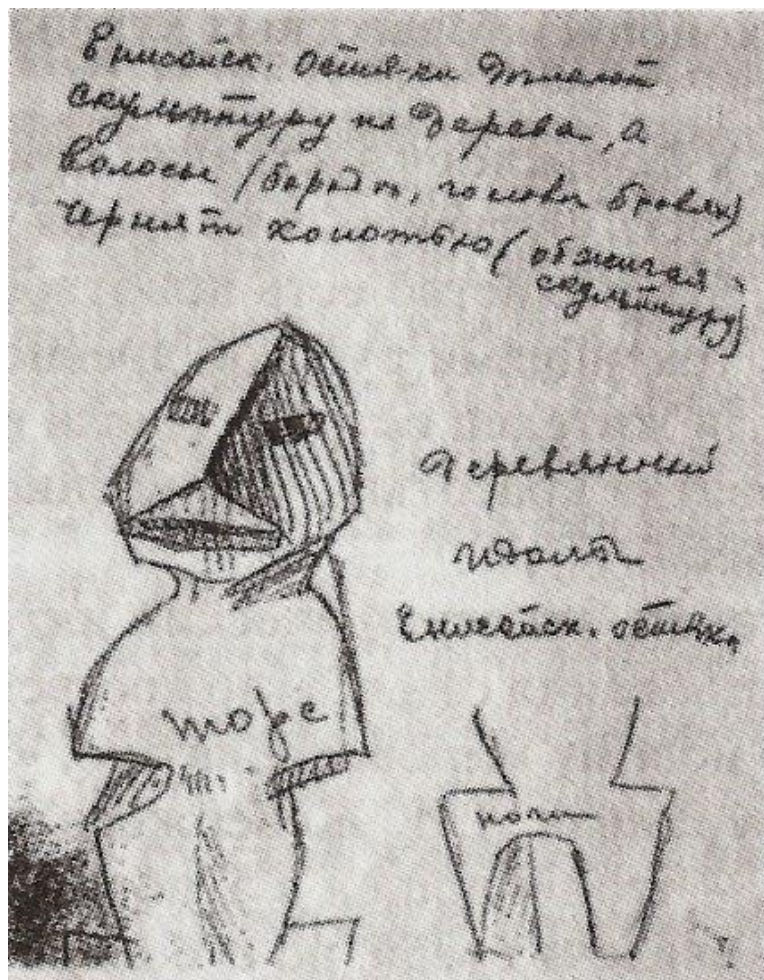 Енисейск. остяки делают
скульптуру из дерева, а
волосы (борода, голова бровях)
чернят копотью (обжигая
скульптуру)
деревянный
идолъ
Енисейск. остяк.
торс
ноги